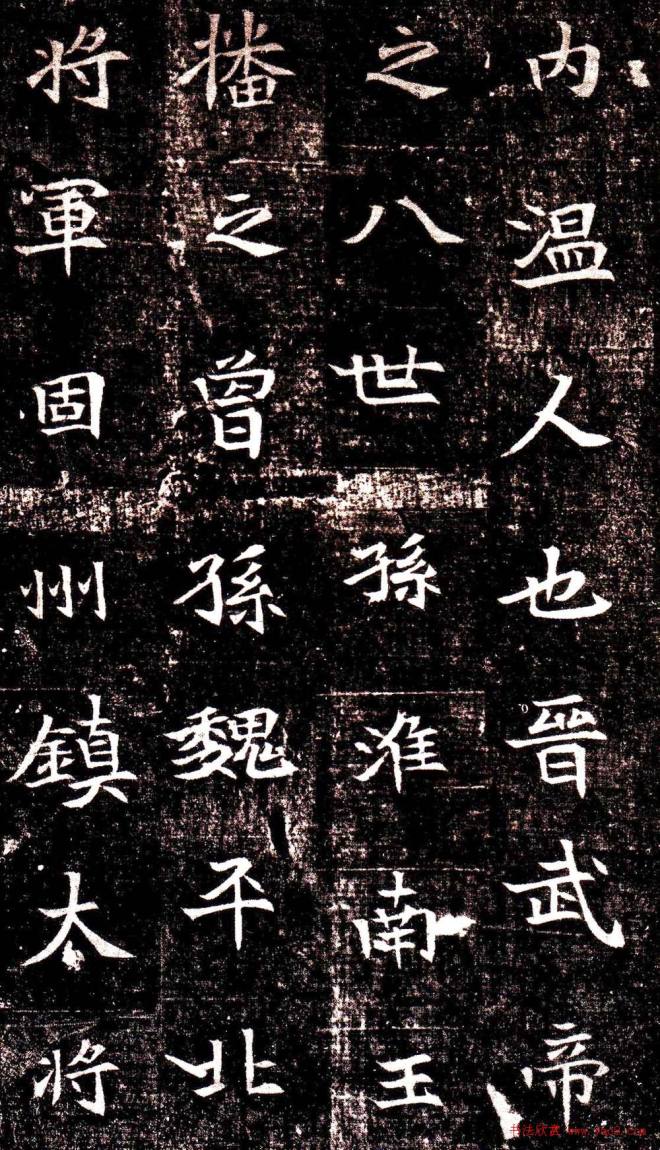 内温人也晉武帝
之八世孫淮南王
播之曾孫魏平北
將軍固州鎮大將
书法欣赏